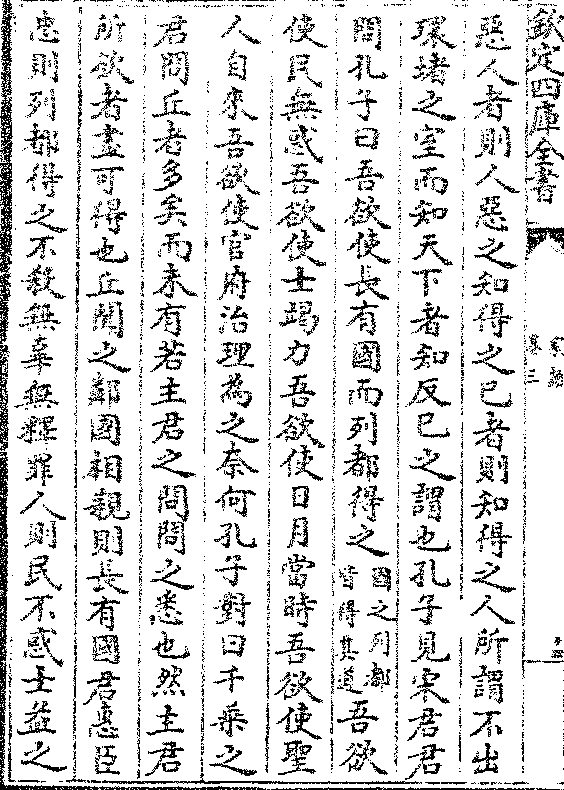 欽定四庫全書
家語
卷三
惡人者則人惡之知得之己者則知得之人所謂不出
環堵之室而知天下者知反己之謂也孔子見宋君君
問孔子曰吾欲使長有國而列都得之國之列都皆得其道吾欲
使民無惑吾欲使士竭力吾欲使日月當時吾欲使聖
人自來吾欲使官府治理為之奈何孔子對曰千乘之
君問丘者多矣而未有若主君之問問之悉也然主君
所欲者盡可得也丘聞之鄰國相親則長有國君惠臣
忠則列都得之不殺無辜無釋罪人則民不惑士益之